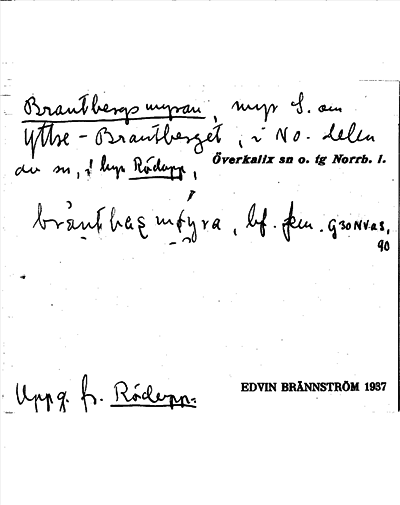 Brantbergsmyran, myr S. om
Yttre-Brantberget, i NO. delen
av sn, i byn Rödupp, Överkalix sn o. tg Norrb. l.
bràntbaʂmǿyra, bf. fem.
90
Uppg. fr. Rödupp. EDVIN BRÄNNSTRÖM 1937